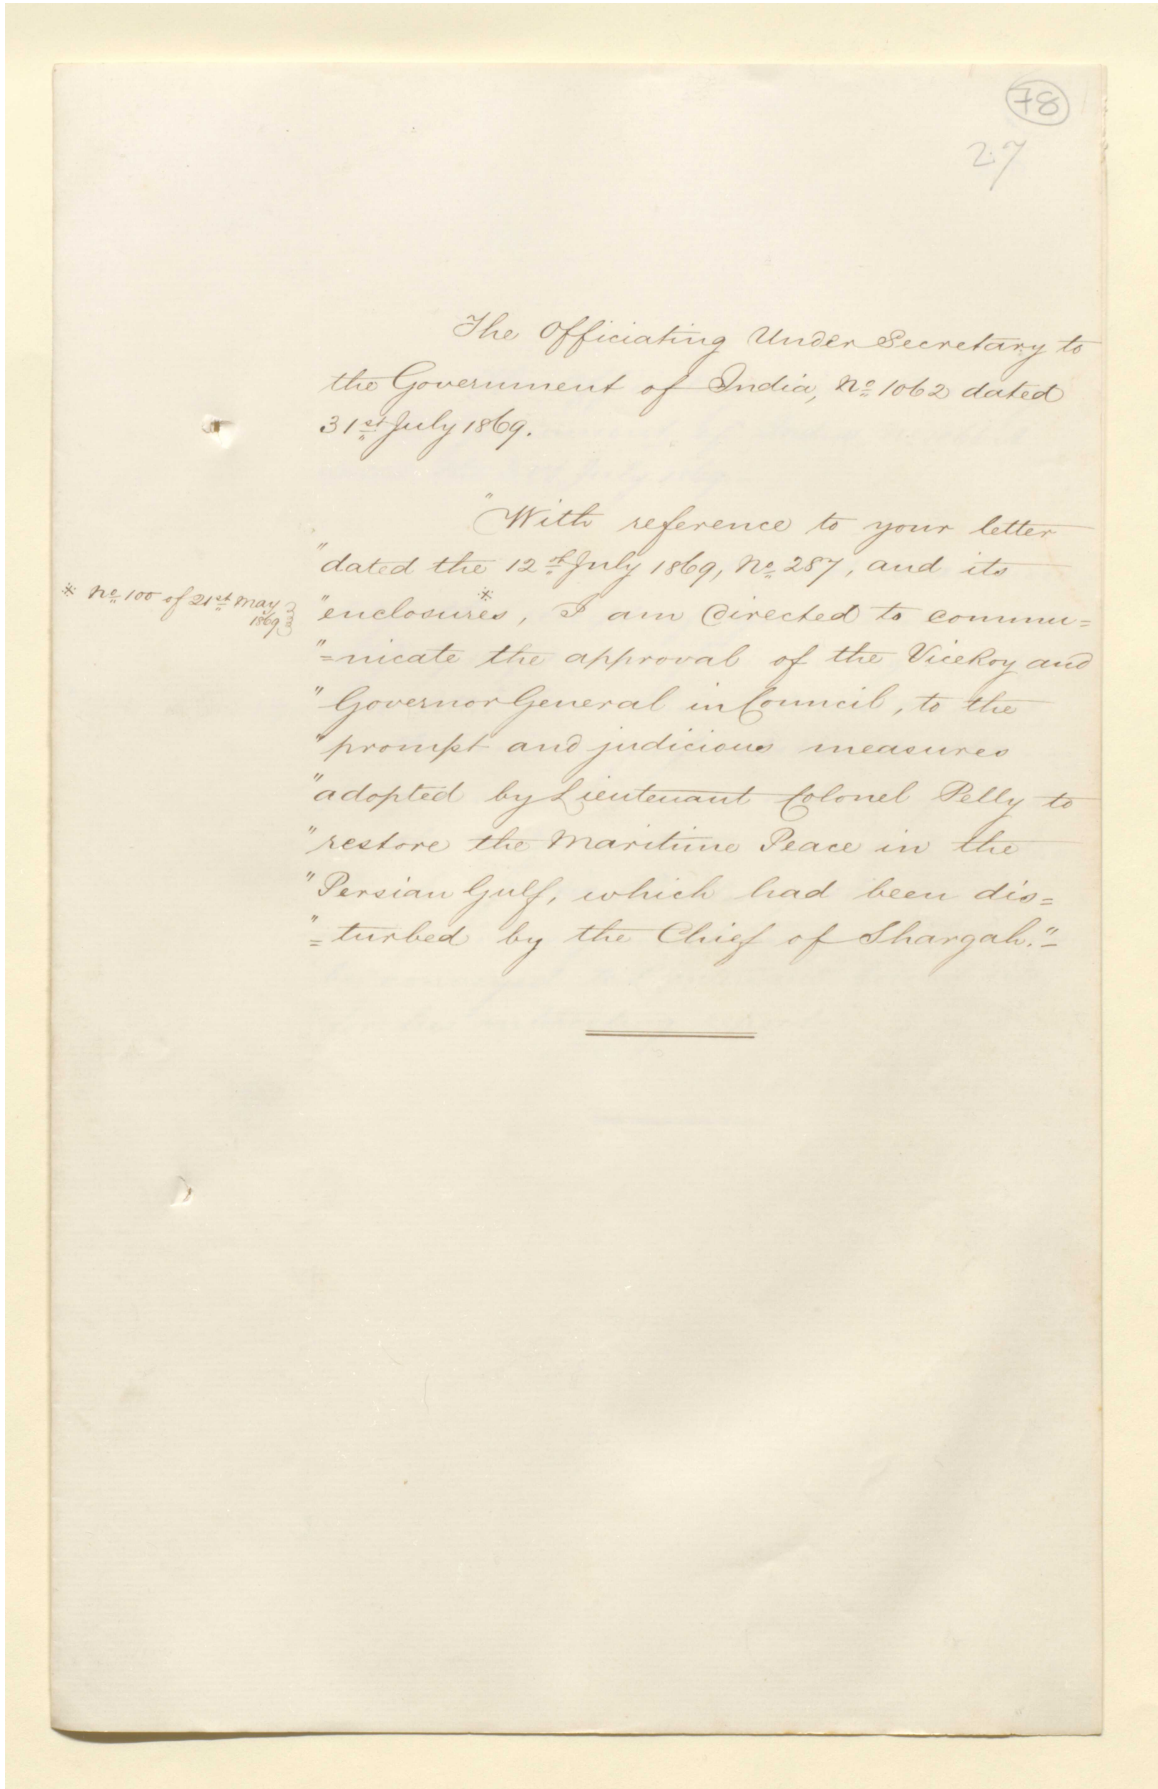 78
27
The Officiating Under Secretary to
the Government of India, No 1062 dated
31st July 1869.
"With reference to your letter
"dated the 12th July 1869, No 287, and its
* No 100 of 21st May
1869
"enclosures,* I am directed to commu=
"=nicate the approval of the ViceRoy and
"Governor General in Council, to the
"prompt and judicious measures
"adopted by Lieutenant Colonel Pelly to
"restore the Maritime Peace in the
"Persian Gulf, which had been dis=
"=turbed by the Chief of Shargah."